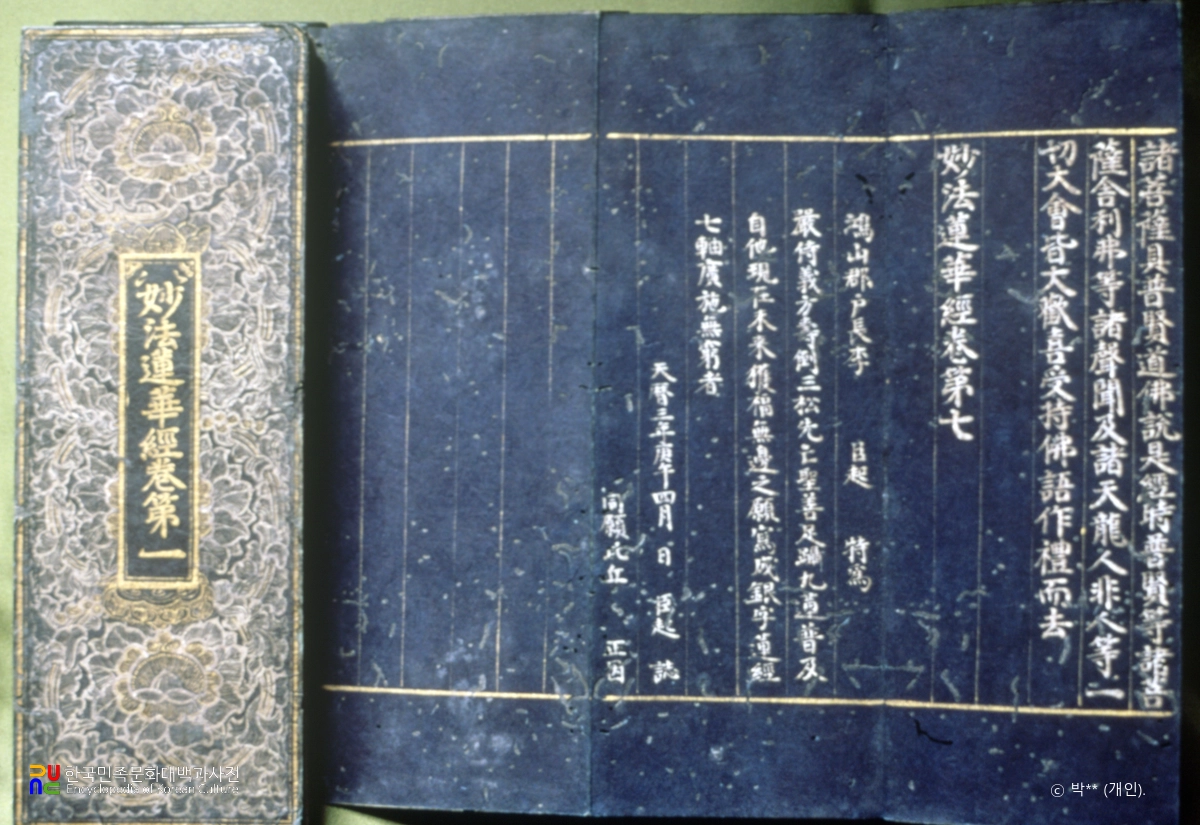 諸菩薩具普賢道佛説是經時普賢等諸菩
薩舍利弗等諸聲聞及諸天龍人非人等一
切大會皆大歡喜受持佛語作禮而去
妙法蓮華經卷第七
鴻山郡戶長李 臣起 特寫
嚴侍義方 三松先亡聖善足 九 普及
自他現亡未來獲福無邊之願寫成銀字蓮經
七軸廣施無窮者
天曆三年庚午四月 日 臣起 誌
同願 丘 正因
妙法蓮華經卷第一
한국민족문화대백과사전
Encyclopedia of Korean Culture
ⓒ 박** (개인).